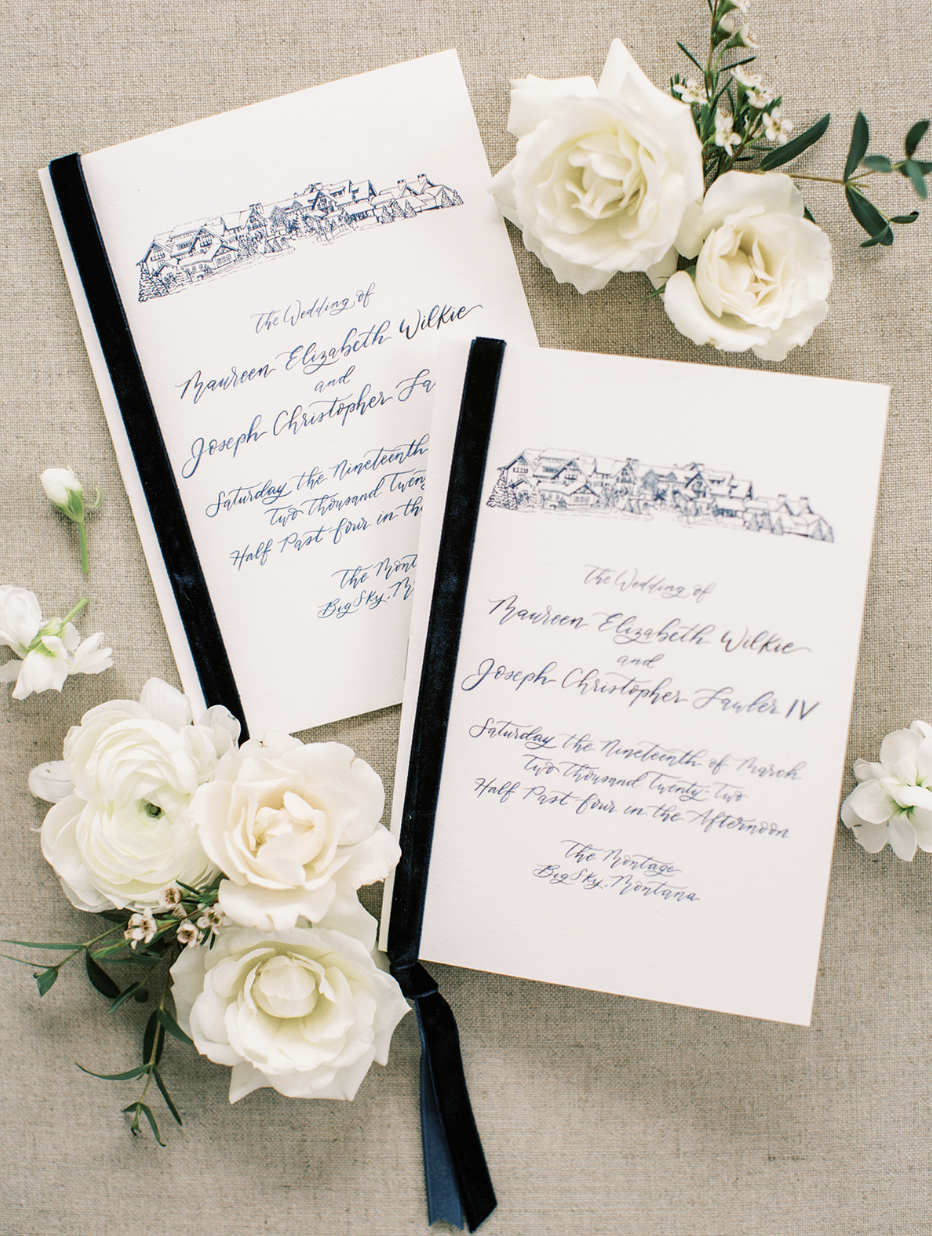 The Wedding of
Maureen Elizabeth Wilkie
and
Joseph Christopher La
Saturday the Nineteenth
Two Thousand Twen
Half Past four in th
The Mont
Big Sky, M
The Wedding of
Maureen Elizabeth Wilkie
and
Joseph Christopher Lawler IV
Saturday the Nineteenth of March
Two Thousand Twenty-Two
Half Past four in the Afternoon
The Montage
Big Sky, Montana